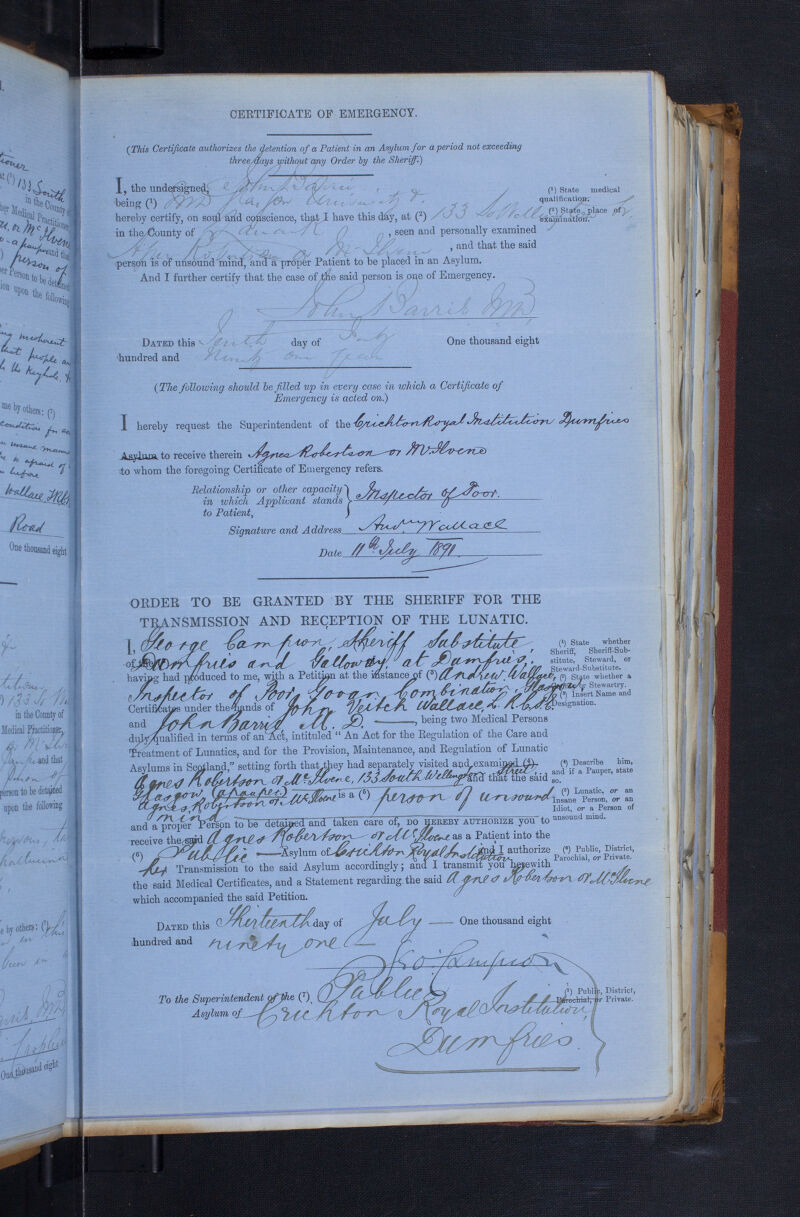 CERTIFICATE OF EMERGENCY.
(This Certificate authorizes the detention of a Patient in an Asylum for a period not exceeding
three days without any Order by the Sheriff.)
I, the undersigned, John Barrie
being (¹) M.D. Glasgow University &
hereby certify, on soul and conscience, that I have this day, at (²) 133 So Wellington St.
in the County of Lanark , seen and personally examined
Agnes Robertson or McIlvene , and that the said
person is of unsound mind, and a proper Patient to be placed in an Asylum.
And I further certify that the case of the said person is one of Emergency.
(¹) State medical
qualification.
(²) State place of
examination.
John Barrie M.D.
DATED this Tenth day of July One thousand eight
hundred and Ninety one years
(The following should be filled up in every case in which a Certificate of
Emergency is acted on.)
I hereby request the Superintendent of the Crichton Royal Institution Dumfries
Asylum to receive therein Agnes Robertson or McIlvene
to whom the foregoing Certificate of Emergency refers.
Relationship or other capacity
in which Applicant stands
to Patient, Inspector of Poor.
Signature and Address Andw Wallace
Date 11th July 1891.
ORDER TO BE GRANTED BY THE SHERIFF FOR THE
TRANSMISSION AND RECEPTION OF THE LUNATIC.
I, George Campion, Sheriff Substitute,
of Dumfries and Galloway, at Dumfries,
having had produced to me, with a Petition at the instance of (³) Andrew Wallace,
Inspector of Poor, Govan Combination, Glasgow,
Certificates under the hands of John Veitch Wallace, L.R.C.S.E.
and John Barrie, M.D. , being two Medical Persons
duly qualified in terms of an Act, intituled "An Act for the Regulation of the Care and
Treatment of Lunatics, and for the Provision, Maintenance, and Regulation of Lunatic
Asylums in Scotland," setting forth that they had separately visited and examined (⁴)
Agnes Robertson or McIlvene, 133 South Wellington Street,
Glasgow, (a pauper) and that the said
Agnes Robertson or McIlvene is a (⁵) person of unsound
mind
and a proper Person to be detained and taken care of, DO HEREBY AUTHORIZE YOU to
receive the said Agnes Robertson or McIlvene as a Patient into the
(⁶) Public Asylum of Crichton Royal Institution and I authorize
her Transmission to the said Asylum accordingly; and I transmit you herewith
the said Medical Certificates, and a Statement regarding the said Agnes Robertson or McIlvene
which accompanied the said Petition.
(¹) State whether
Sheriff, Sheriff-Substitute, Steward, or
Steward-Substitute.
(²) State whether a
County or Stewartry.
(³) Insert Name and
Designation.
(⁴) Describe him,
and if a Pauper, state
so.
(⁵) Lunatic, or an
Insane Person, or an
Idiot, or a Person of
unsound mind.
(⁶) Public, District,
Parochial, or Private.
DATED this Thirteenth day of July One thousand eight
hundred and ninety one
Geo. Campion
To the Superintendent of the (⁷), Public
Asylum of Crichton Royal Institution,
Dumfries.
(⁷) Public, District,
Parochial, or Private.